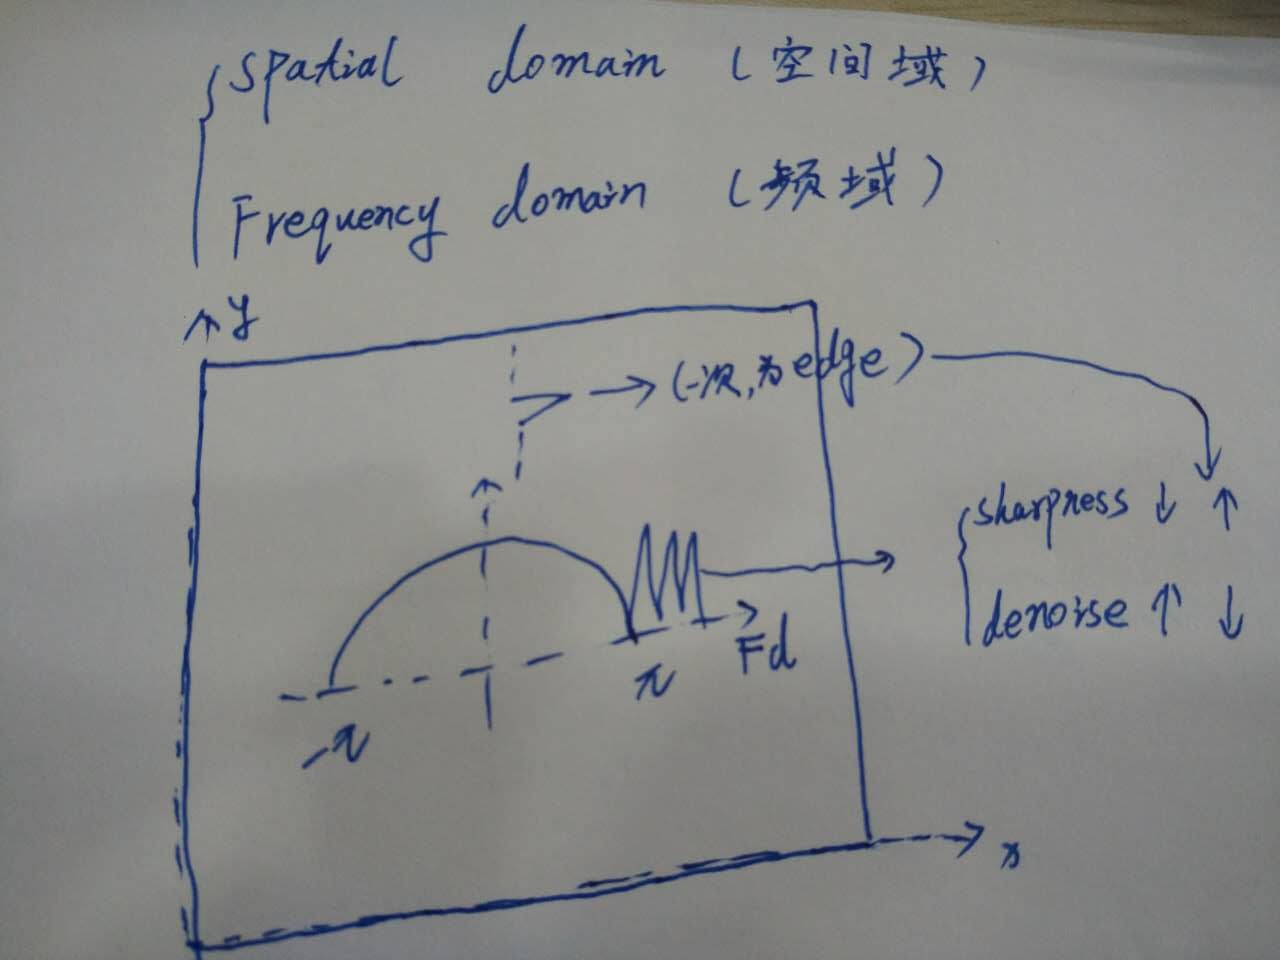 Spatial domain (空间域)
Frequency domain (频域)
y
(一次,为edge)
sharpness ↓ ↑
denoise ↑ ↓
Fd
-π
π
x